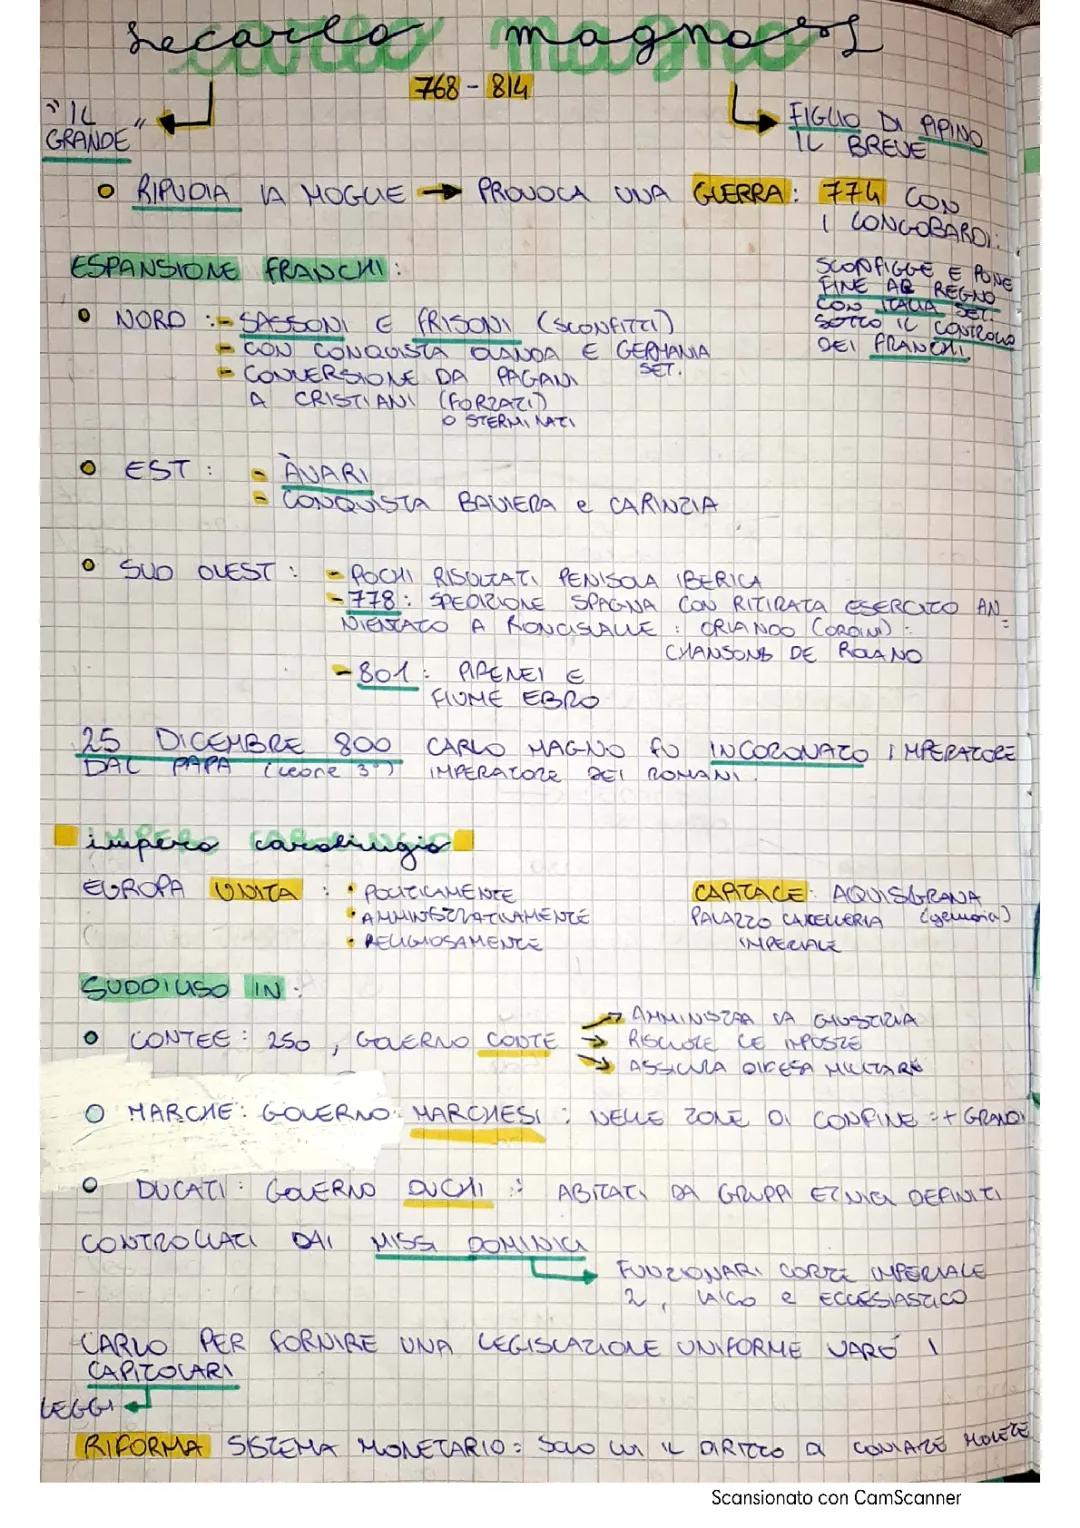 carlo magno
768 - 814
"IL GRANDE"
FIGLIO DI PIPINO
IL BREVE
RIPUDIA LA MOGLIE → PROVOCA UNA GUERRA: 774 CON
I LONGOBARDI:
SCONFIGGE E PONE
FINE AL REGNO
CON ITALIA SET.
SOTTO IL CONTROLLO
DEI FRANCHI
ESPANSIONE FRANCHI:
NORD: - SASSONI E FRISONI (SCONFITTI)
- CON CONQUISTA OLANDA E GERMANIA
SET.
- CONVERSIONE DA PAGANI
A CRISTIANI (FORZATI)
O STERMINATI
EST: - ÀVARI
- CONQUISTA BAVIERA e CARINZIA
SUD OVEST: - POCHI RISULTATI PENISOLA IBERICA
- 778: SPEDIZIONE SPAGNA CON RITIRATA ESERCITO AN
NIENTATO A RONCISVALLE: ORLANDO (ORDINI):
CHANSONS DE ROLAND
- 801: PIRENEI E
FIUME EBRO
25 DICEMBRE 800 CARLO MAGNO FU INCORONATO IMPERATORE
DAL PAPA (leone 3°) IMPERATORE DEI ROMANI.
impero carolingio
EUROPA UNITA: • POLITICAMENTE
• AMMINISTRATIVAMENTE
• RELIGIOSAMENTE
CAPITALE: AQUISGRANA
PALAZZO CANCELLERIA (germania)
IMPERIALE
SUDDIVISO IN:
CONTEE: 250, GOVERNO CONTE → AMMINISTRA LA GIUSTIZIA
→ RISCUOTE LE IMPOSTE
→ ASSICURA DIFESA MILITARE
MARCHE: GOVERNO MARCHESI: NELLE ZONE DI CONFINE = + GRANDI
DUCATI: GOVERNO DUCHI: ABITATI DA GRUPPI ETNICI DEFINITI
CONTROLLATI DAI MISSI DOMINICI
FUNZIONARI CORTE IMPERIALE
2, LAICO e ECCLESIASTICO
CARLO PER FORNIRE UNA LEGISLAZIONE UNIFORME VARÒ I
CAPITOLARI
LEGGI
RIFORMA SISTEMA MONETARIO: SOLO LUI IL DIRITTO a CONIARE MONETE
Scansionato con CamScanner